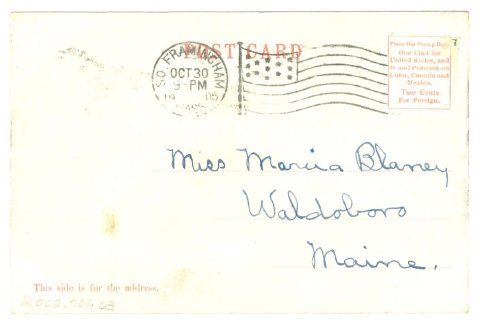 POST CARD
SO. FRAMINGHAM
OCT 30
9-PM
1905
MASS.
Place the Stamp Here
One Cent for
United States, and
Island Possessions
Cuba, Canada and
Mexico.
Two Cents
For Foreign.
Miss Marcia Blaney
Waldoboro
Maine.
This side is for the address.
2002.701.63